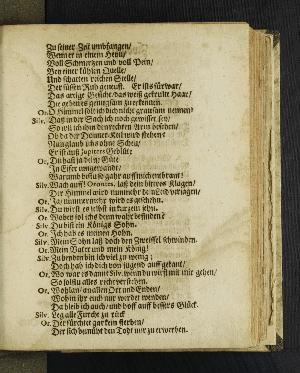 Zu seiner Zeit umbfangen/
Wenn er in einem Hey
Voll Schmertzen und voll Pein/
Bey einer kühlen Quelle/
Und schatten reichen Stelle/
Der süssen Ruh geneust. Er ists fürwar/
Das artige Gesicht/ das weiß gekrülte Haar/
Die geben es genugsam zuerkennen.
Or. O Himmel solt ich dich nicht grausam nennen?
Silv. Daß in der Sach ich noch gewisser sey/
So wil ich ihm den rechten Arm besehen/
Ob da der Donner-Keil wird stehen?
Nun glaub ichs ohne Scheu/
Er ist auß Jupiters Geblüte;
Or. Du hast ja dein Güte
In Eifer umgewandt;
Warumb
Silv. Wach auff! Orontes, laß dein bittres Klagen/
Der Himmel wird nunmehr
Or. Ja nimmermehr wird es geschehn.
Silv. Du wirst es selbst in kurzem sehn.
Or. Wobey sol ichs denn wahr befinden?
Silv. Du bist ein Königs Sohn.
Or. Ich hab es meinen Hohn.
Silv. Mein Sohn laß doch den Zweiffel schwinden.
Or. Mein Vater und mein König!
Silv. Zu beyden bin ich viel zu wenig;
Doch hab ich dich von jugend auff gekant/
Or. Wo war es damit Silv. wenn du wirst mit mir gehen/
So solstu alles recht verstehen.
Or. Wohlan/ an allen Ort und Enden/
Wohin ihr euch nur werdet wenden/
Da bleib ich auch/ und hoff auff bessers Glück.
Silv. Leg alle Furcht zu rück
Or. Der fürchte
Der sich bemüht den Todt nur zu erwerben.